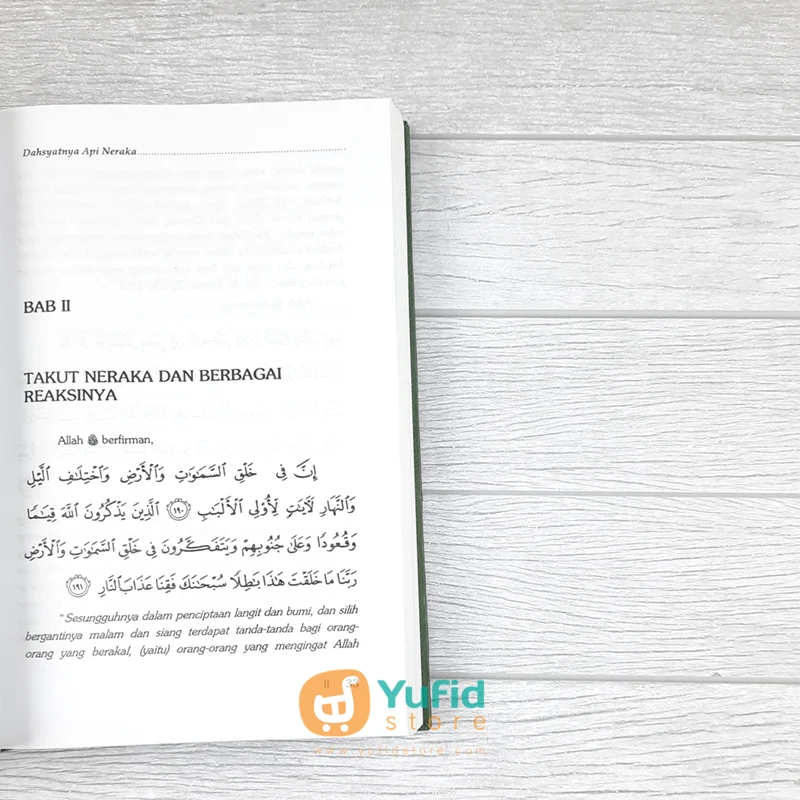 Dahsyatnya Api Neraka
BAB II
TAKUT NERAKA DAN BERBAGAI
REAKSINYA
Allah ﷻ berfirman,
إِنَّ فِي خَلْقِ السَّمَاوَاتِ وَالْأَرْضِ وَاخْتِلَافِ الَّيْلِ
وَالنَّهَارِ لَآيَاتٍ لِّأُولِي الْأَلْبَابِ ﴿١٩٠﴾ الَّذِينَ يَذْكُرُونَ اللَّهَ قِيَامًا
وَقُعُودًا وَعَلَىٰ جُنُوبِهِمْ وَيَتَفَكَّرُونَ فِي خَلْقِ السَّمَاوَاتِ وَالْأَرْضِ
رَبَّنَا مَا خَلَقْتَ هَٰذَا بَاطِلًا سُبْحَانَكَ فَقِنَا عَذَابَ النَّارِ ﴿١٩١﴾
"Sesungguhnya dalam penciptaan langit dan bumi, dan silih
bergantinya malam dan siang terdapat tanda-tanda bagi orang-
orang yang berakal, (yaitu) orang-orang yang mengingat Allah
II 33
Yufid
store
www.yufidstore.com